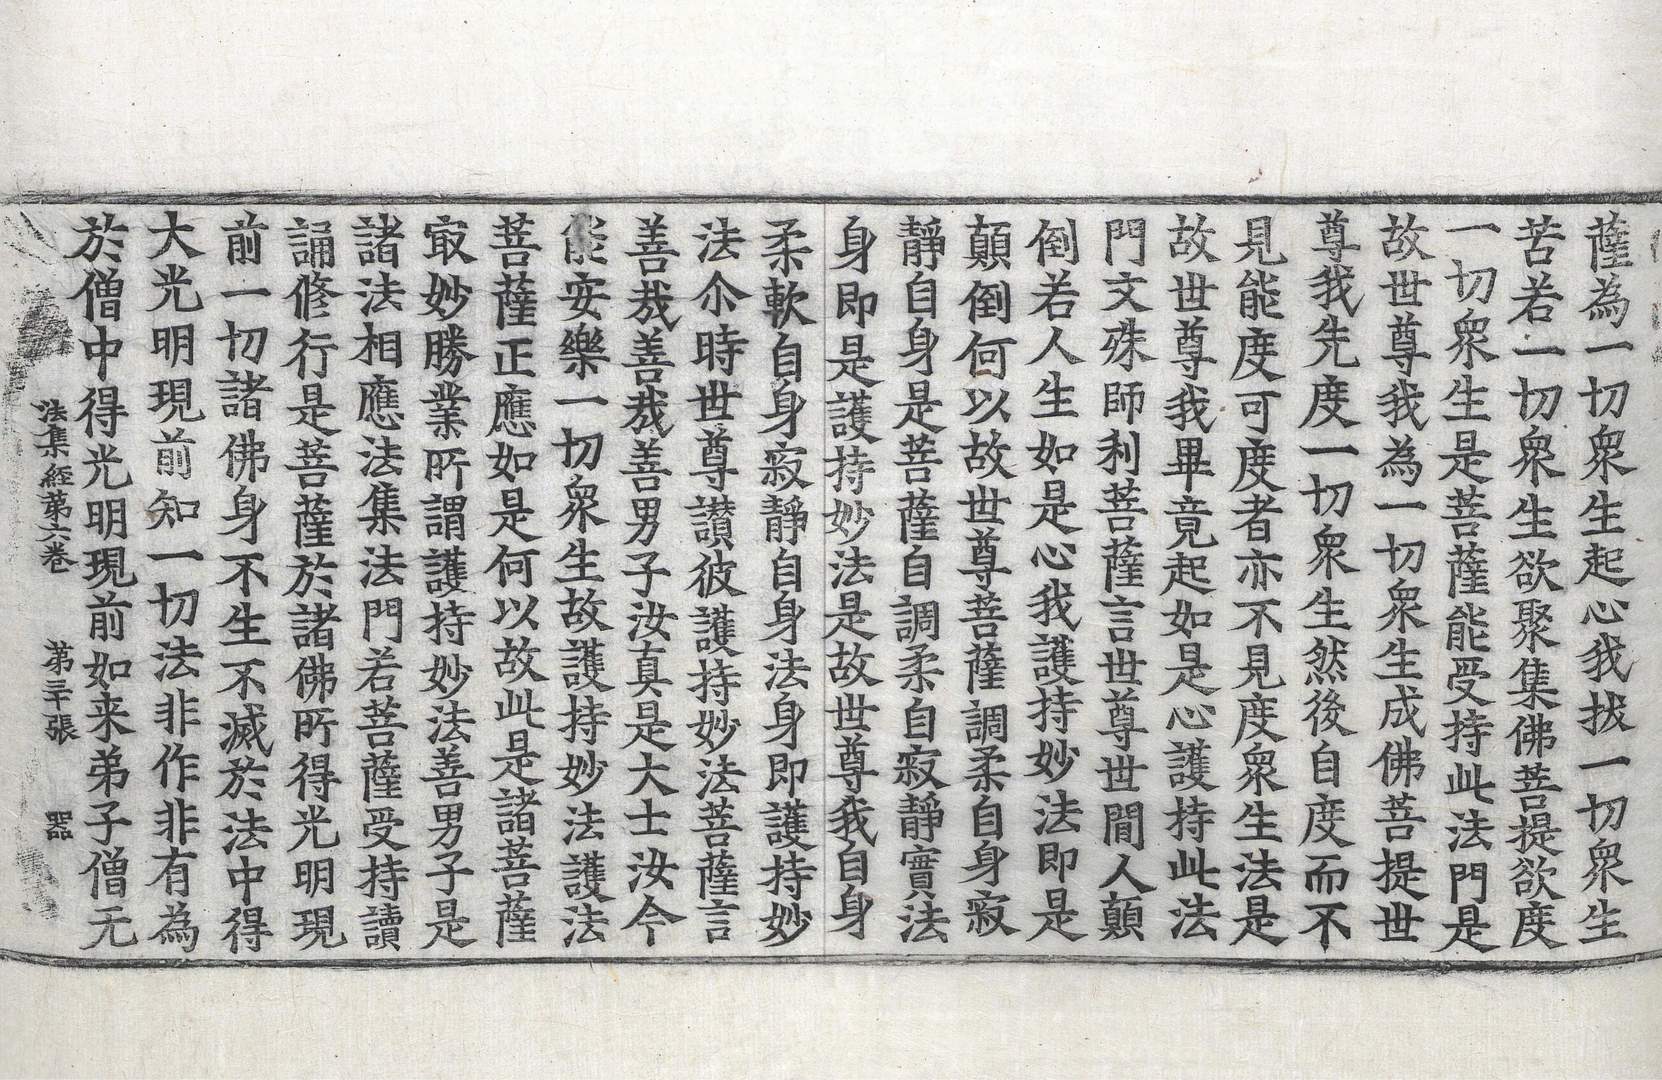 薩為一切衆生起心我拔一切衆生
苦若一切衆生欲聚集佛菩提欲度
一切衆生是菩薩能受持此法門是
故世尊我為一切衆生成佛菩提世
尊我先度一切衆生然後自度而不
見能度可度者亦不見度衆生法是
故世尊我畢竟起如是心護持此法
門文殊師利菩薩言世尊世間人顛
倒若人生如是心我護持妙法即是
顛倒何以故世尊菩薩調柔自身寂
靜自身是菩薩自調柔自寂靜實法
身即是護持妙法是故世尊我自身
柔軟自身寂靜自身法身即護持妙
法尒時世尊讃彼護持妙法菩薩言
善哉善哉善男子汝真是大士汝今
能安樂一切衆生故護持妙法護法
菩薩正應如是何以故此是諸菩薩
㝡妙勝業所謂護持妙法善男子是
諸法相應法集法門若菩薩受持讀
誦修行是菩薩於諸佛所得光明現
前一切諸佛身不生不滅於法中得
大光明現前知一切法非作非有為
於僧中得光明現前如来弟子僧无
法集經第六卷 第三十張 器